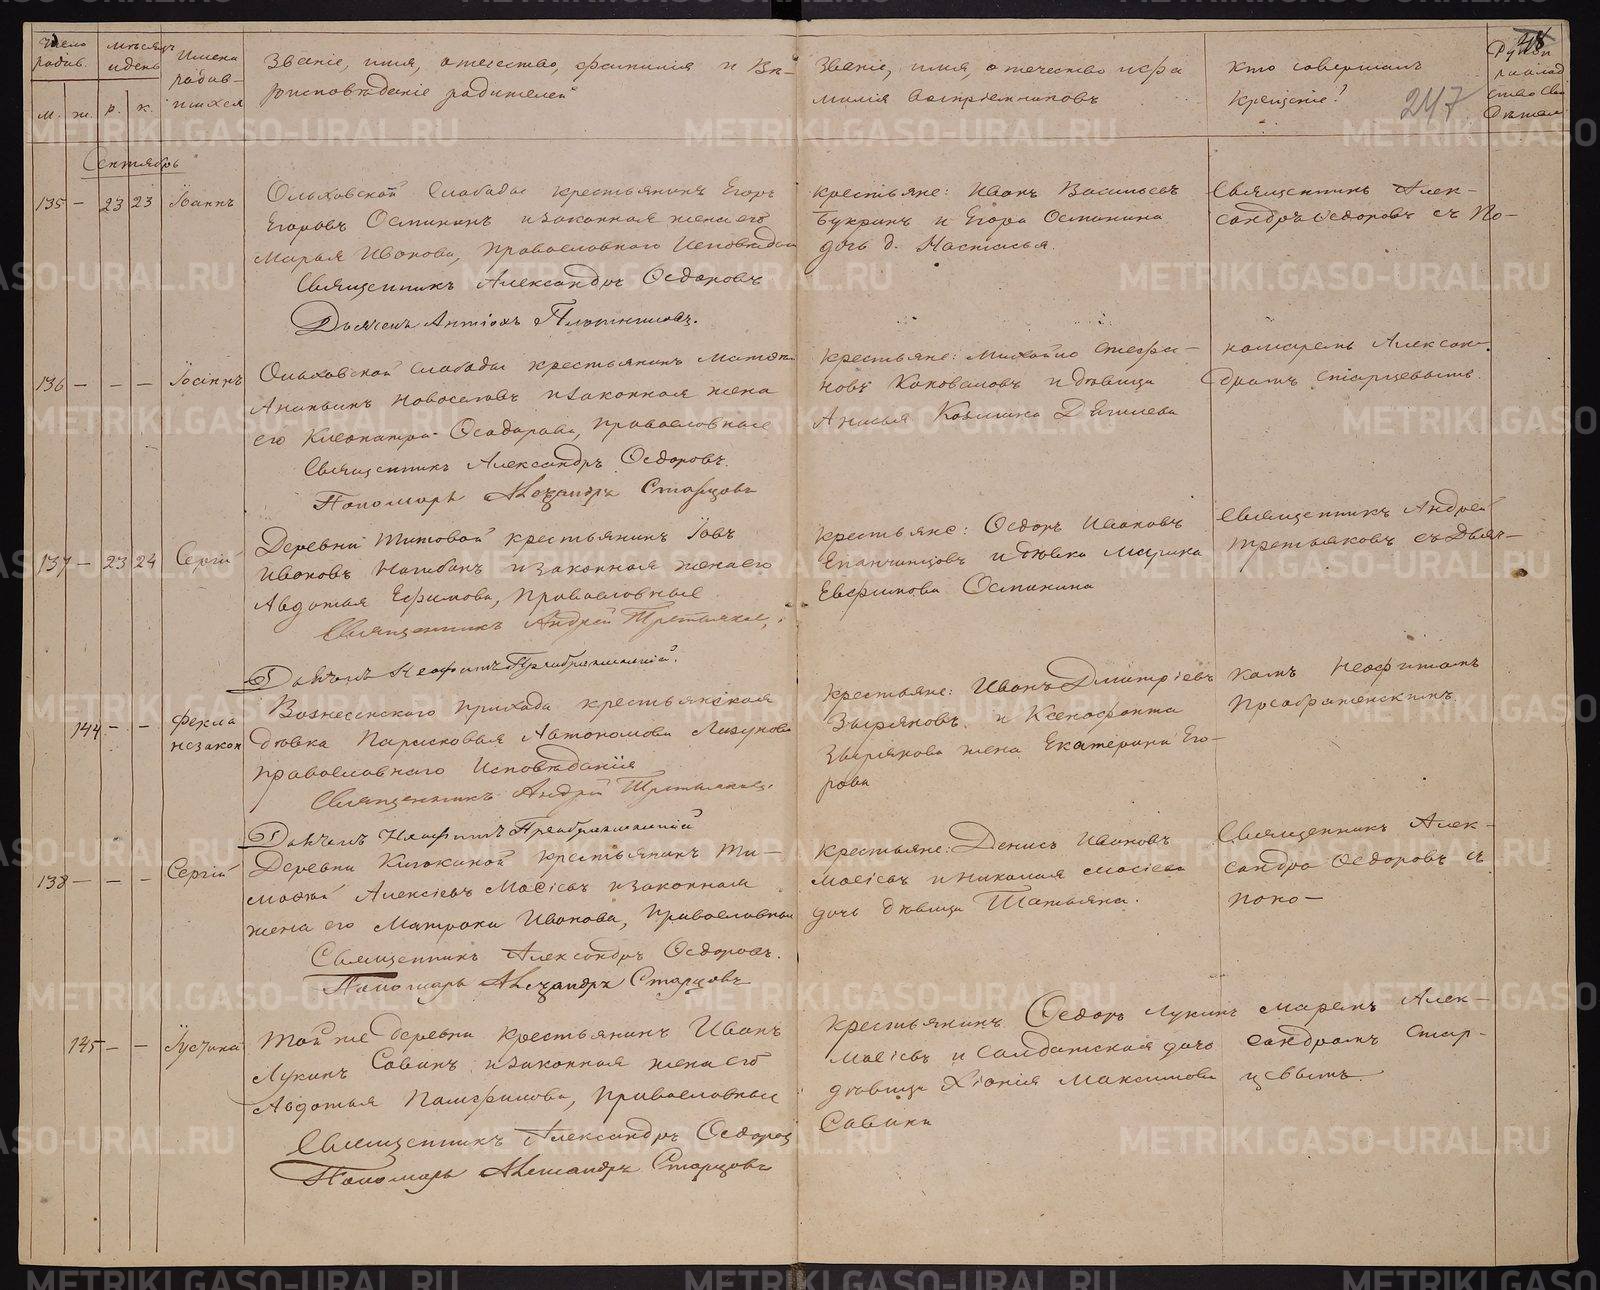 Число родив.
мѣсяцъ и день
Имена родив-шихся
Званіе, имя, отчество, фамилія и Вѣ-
роисповѣданіе родителей
Званіе, имя, отчество и фа
милія воспріемниковъ
Кто совершалъ
крещеніе?
247
м. ж. р. к.
Сентябрь
135 — 23 23 Іоаннъ
Ольховской Слободы крестьянинъ Егоръ
Егоровъ Осминин и законная жена его
Марья Иванова, православнаго
Священникъ Александръ Ѳедоровъ
Дьячекъ Плотниковъ.
крестьяне: Иванъ Васильевъ
Букринъ и Егора Осминина
дочь д. Настасья.
Священникъ Алек-
сандръ Ѳедоровъ съ По-
136 — — — Іоаннъ
Ольховской слободы крестьянинъ
Ананьинъ Новоселовъ и законная жена
его Клеопатра Ѳеодорова, православные
Священникъ Александръ Ѳедоровъ.
Пономарь Александръ Старцовъ
крестьяне: Михайло Стефа-
новъ Коноваловъ и дѣвица
Анисья Козмина
номаремъ Алексан-
дромъ Старцевымъ.
137 — 23 24 Сергій
Деревни Титовой крестьянинъ Іовъ
Ивановъ и законная жена его
Авдотья Ефимова, православные
Священникъ Андрей Третьяковъ
Дьячекъ Неофитъ Преображенскій.
крестьяне: Ѳедоръ Ивановъ
Епанчинцовъ и дѣвка Марика
Евфимова Осминина
Священникъ Андрей
Третьяковъ съ Дьяч-
144 — — Фекла
незакон
Вознесенскаго прихода крестьянская
дѣвка Парасковья Автономова
православнаго исповѣданія
Священникъ Андрей Третьяковъ
Дьячекъ Неофитъ Преображенскій
крестьяне: Иванъ Дмитріевъ
Зыряновъ и Ксенофонта
Зырянова жена Екатерина Его-
рова
комъ Неофитомъ
Преображенскимъ
138 — — — Сергій
Деревни крестьянинъ Ти-
мофей Алексѣевъ Мосѣевъ и законная
жена его Матрона Иванова, православные
Священникъ Александръ Ѳедоровъ.
Пономарь Александръ Старцовъ
крестьяне: Денисъ Ивановъ
Мосіевъ и Николая Мосіева
дочь дѣвица Татьяна.
Священникъ Алек-
сандръ Ѳедоровъ съ
поно-
145 — — Іустина
Той же деревни крестьянинъ Иванъ
Лукинъ Савинъ и законная жена его
Авдотья Памфилова, православные
Священникъ Александръ Ѳедоровъ
Пономарь Александръ Старцовъ
крестьянинъ Ѳедоръ Лукинъ
Мосіевъ и солдатская дочь
дѣвица Хіонія Максимова
Савина
маремъ Алек-
сандромъ Стар-
цевымъ.
METRIKI.GASO-URAL.RU